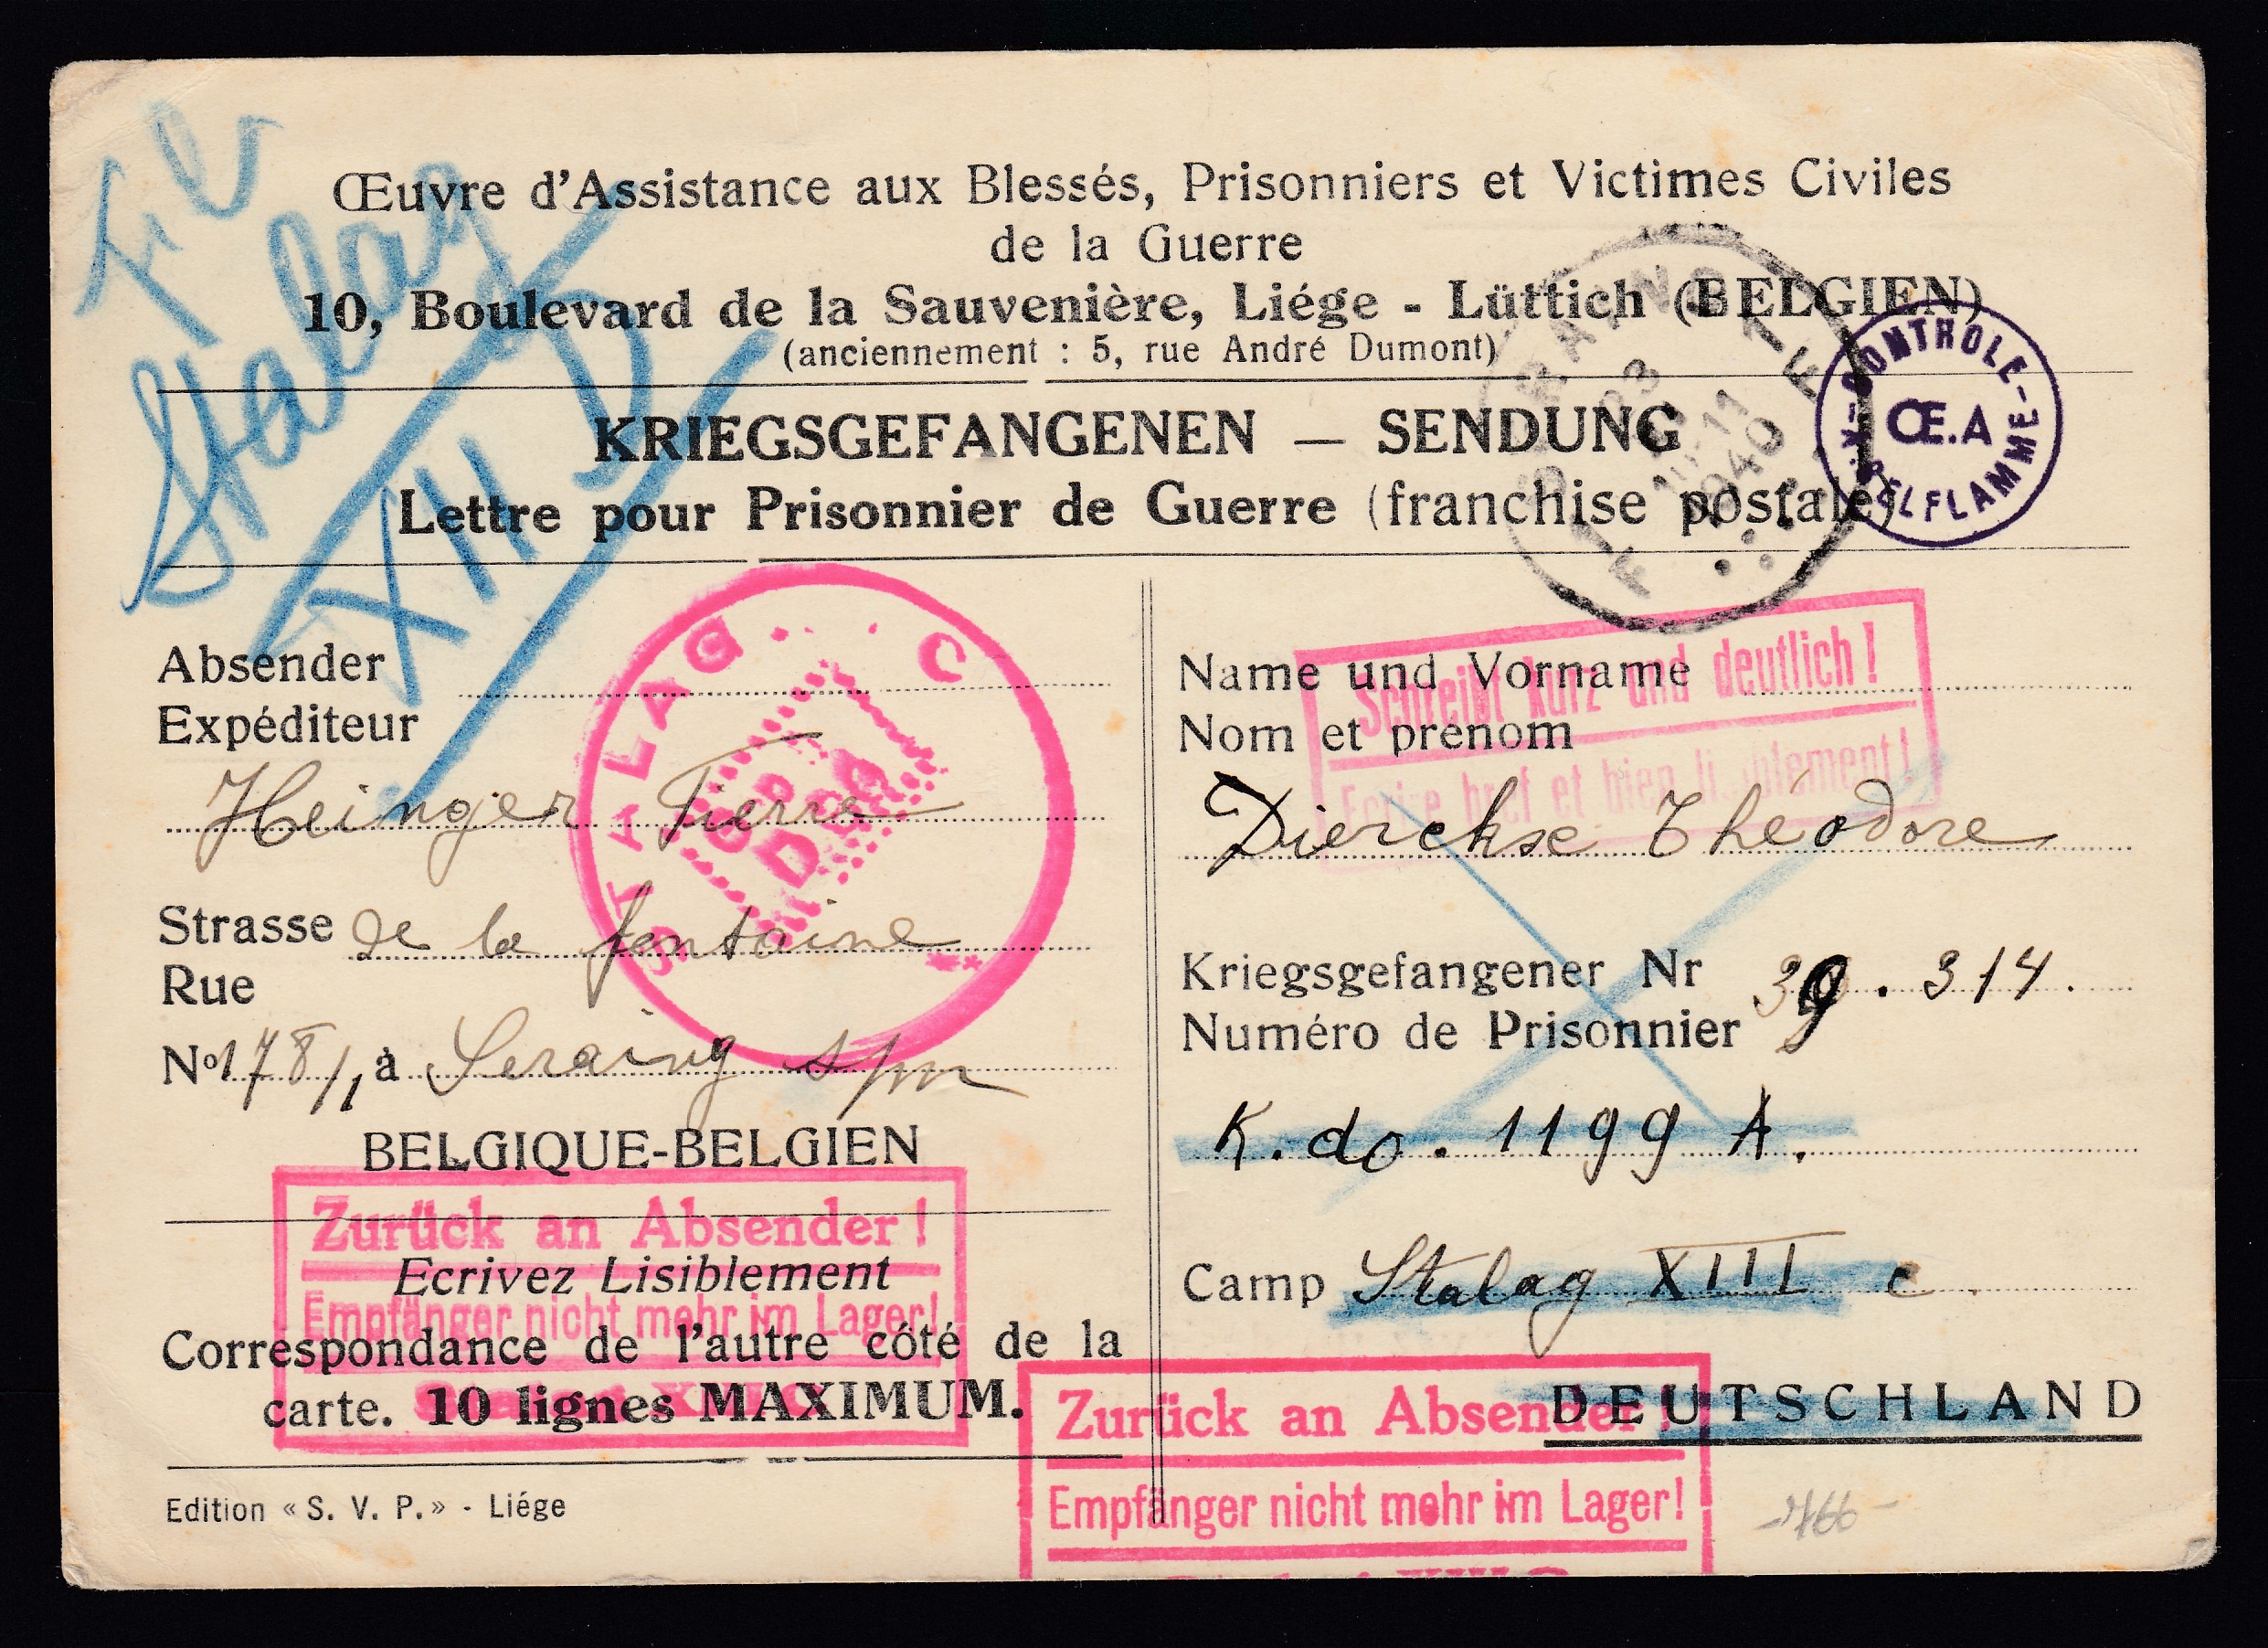 Œuvre d'Assistance aux Blessés, Prisonniers et Victimes Civiles
de la Guerre
10, Boulevard de la Sauvenière, Liége - Lüttich (BELGIEN)
(anciennement : 5, rue André Dumont)
Stalag
XII D
CONTROLE
Œ.A
BELFLAMME
1940
KRIEGSGEFANGENEN — SENDUNG
Lettre pour Prisonnier de Guerre (franchise postale)
STALAG C
Absender
Expéditeur
Heinger Pierre
Strasse de la fontaine
Rue
No 178/1 à Seraing s/m
BELGIQUE-BELGIEN
Zurück an Absender!
Ecrivez Lisiblement
Empfänger nicht mehr im Lager!
Correspondance de l'autre côté de la
carte. 10 lignes MAXIMUM.
Edition « S. V. P. » - Liége
Schreibt kurz und deutlich!
Name und Vorname
Nom et prénom
Ecrire bref et bien lisiblement!
Dierckse Théodore
Kriegsgefangener Nr 39.314.
Numéro de Prisonnier
K.do. 1199 A.
Camp Stalag XIII c.
DEUTSCHLAND
Zurück an Absender!
Empfänger nicht mehr im Lager!